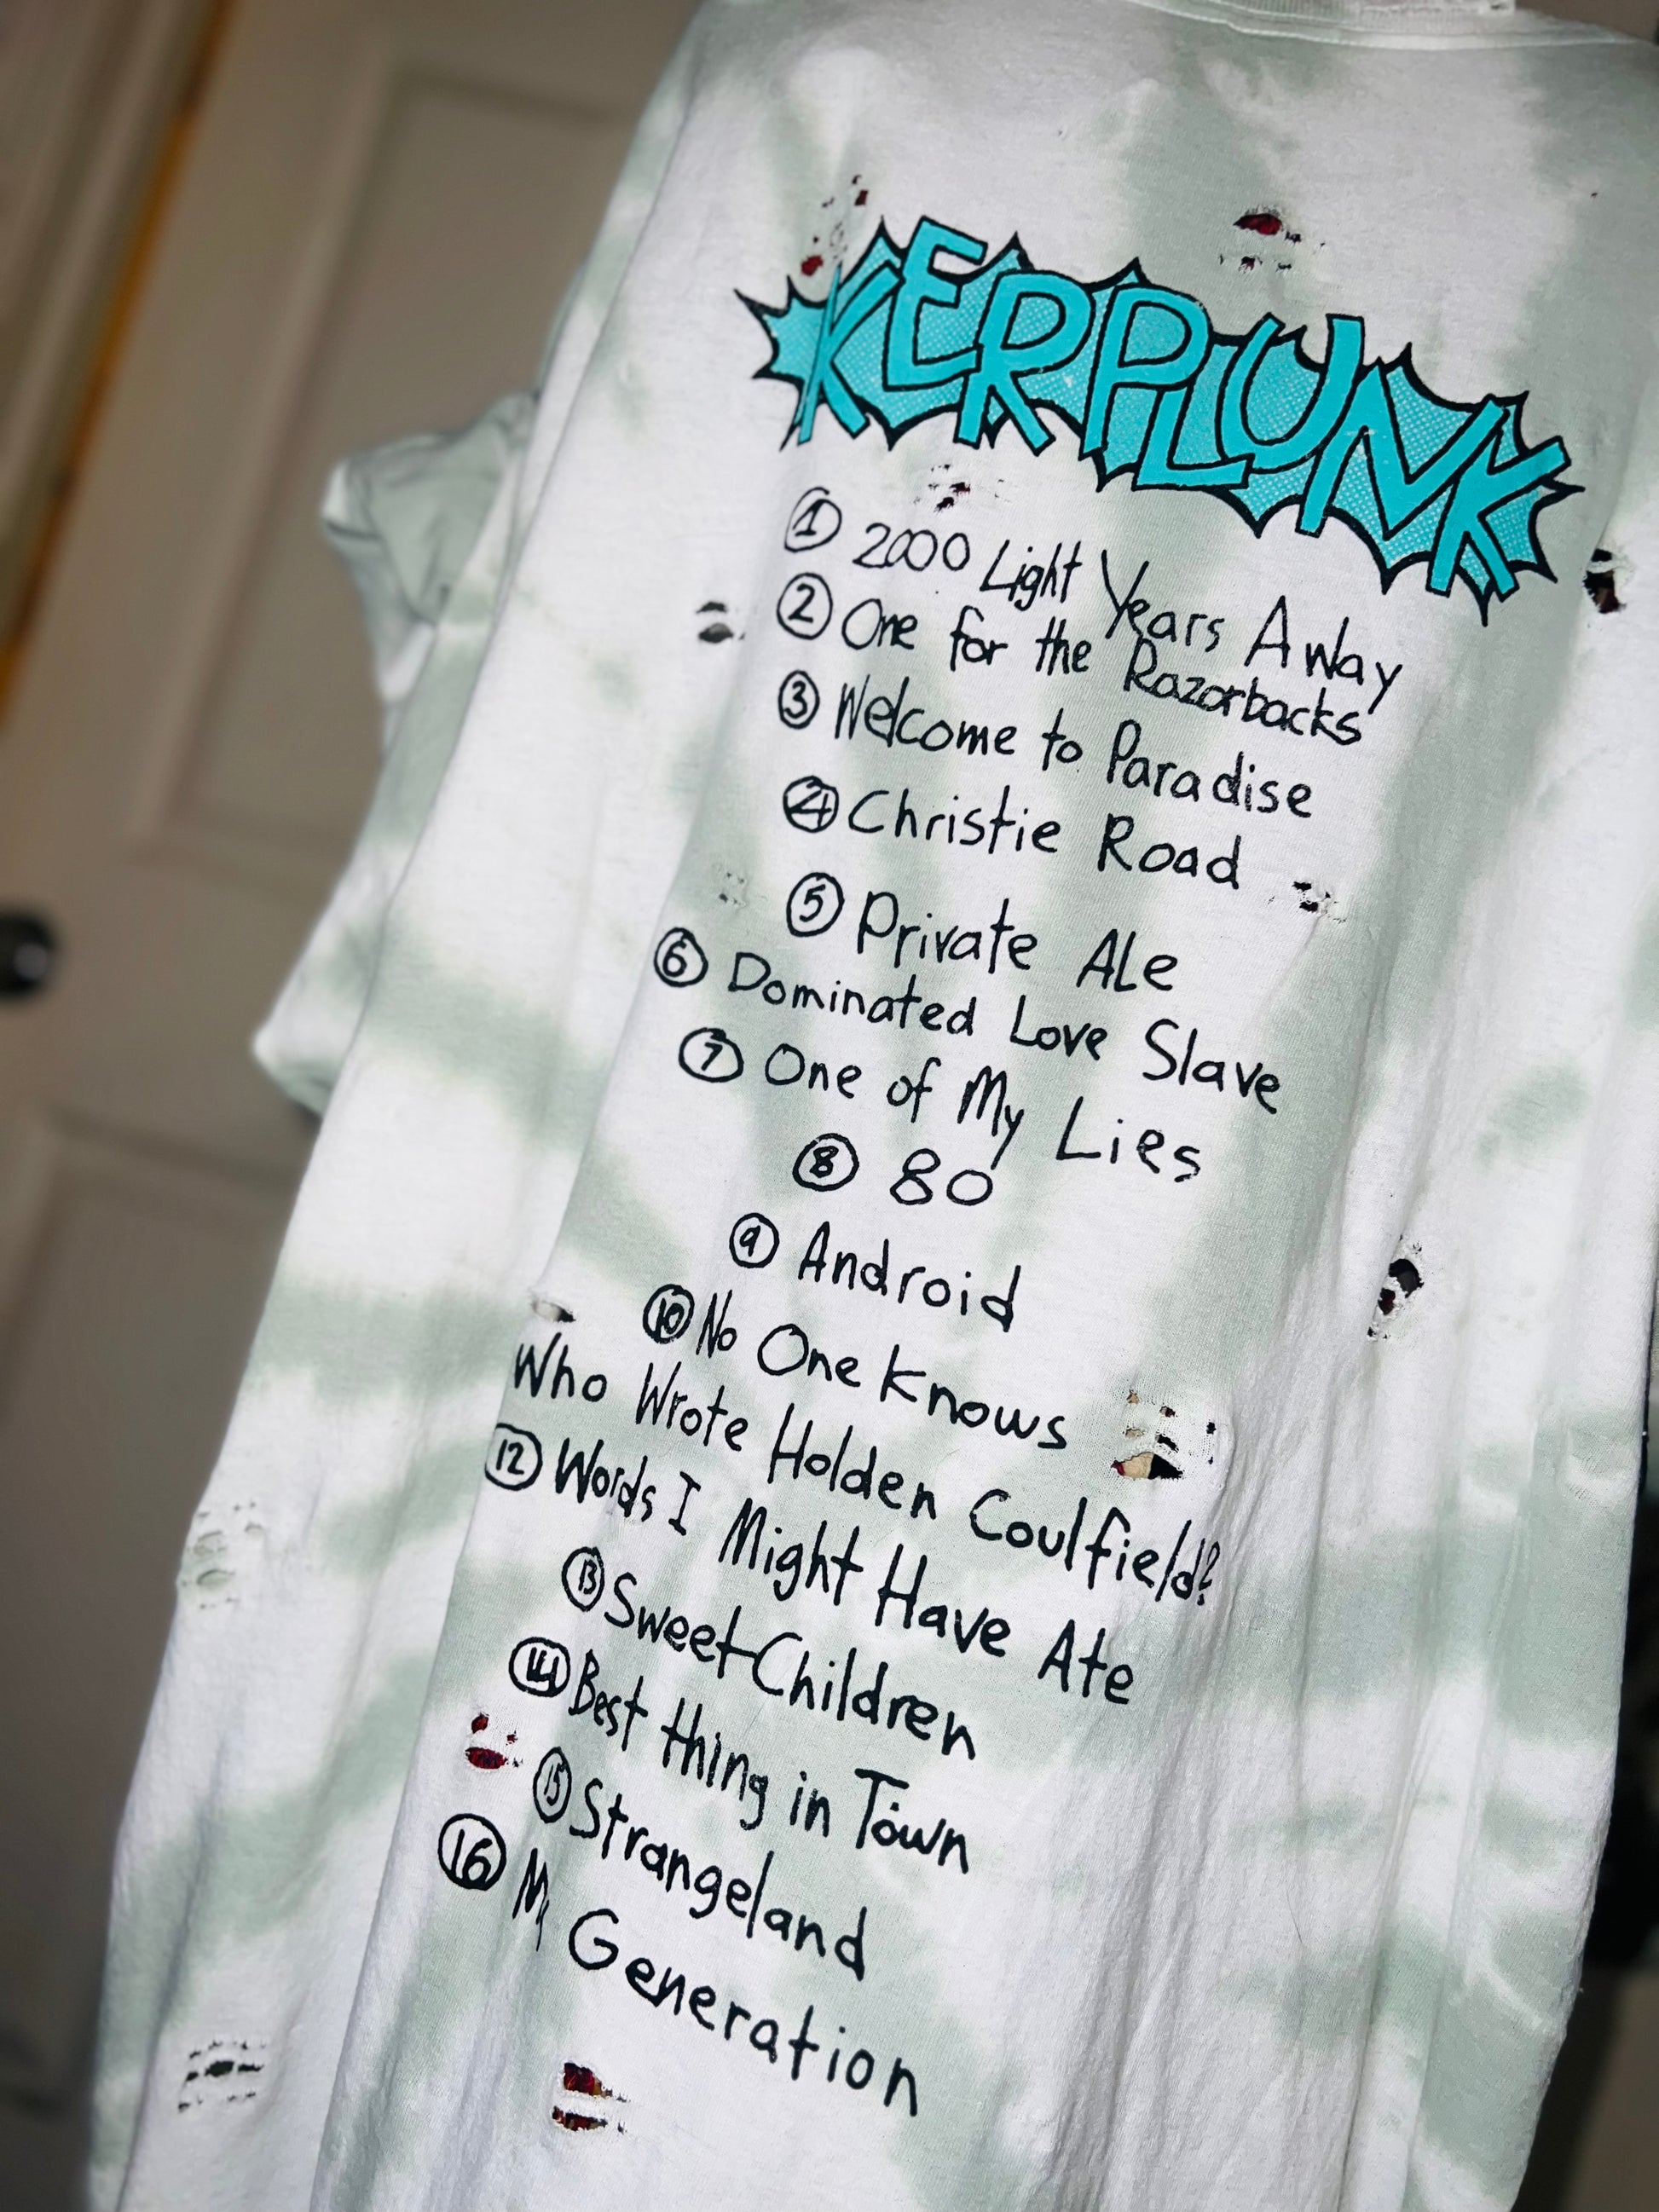 KERPLUNK
① 2000 Light Years Away
② One for the Razorbacks
③ Welcome to Paradise
④ Christie Road
⑤ Private Ale
⑥ Dominated Love Slave
⑦ One of My Lies
⑧ 80
⑨ Android
⑩ No One Knows
Who Wrote Holden Coulfield?
⑫ Words I Might Have Ate
⑬ Sweet Children
⑭ Best thing in Town
⑮ Strangeland
⑯ My Generation